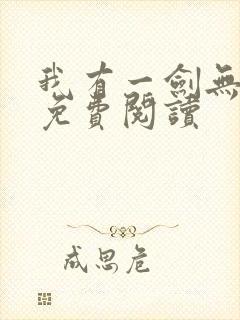 我有一劍無
免費閱讀
成思危